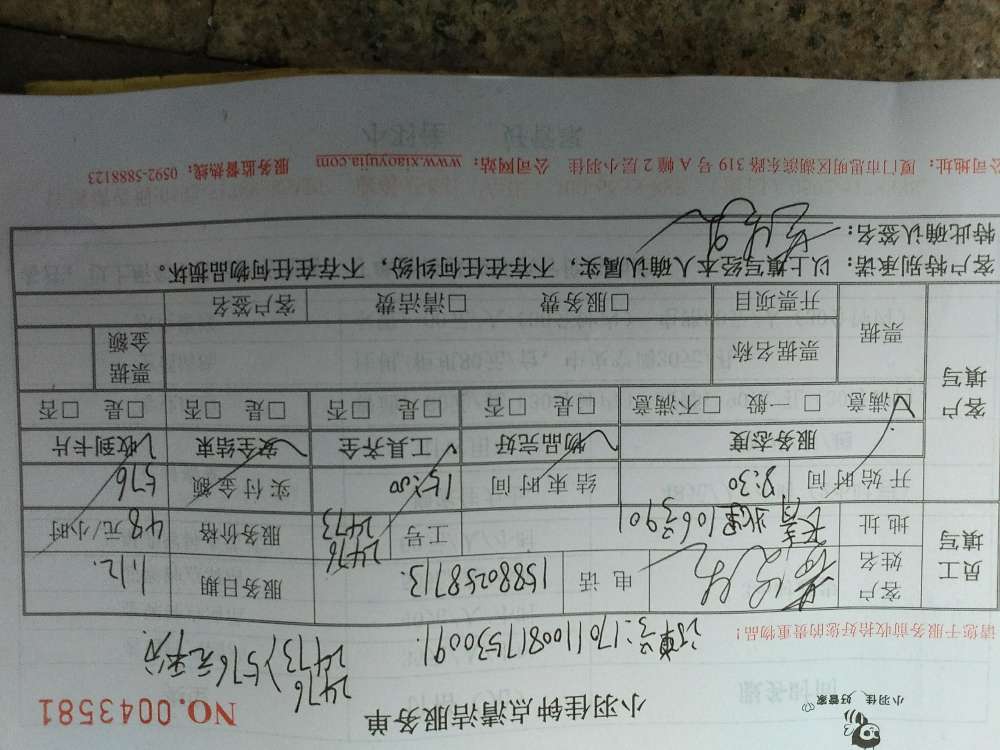 小羽佳 好管家
小羽佳钟点清洁服务单
NO.0043581
请您于服务前收拾好您的贵重物品!
订单号:1701100817530091.
2476
2473 〉576元平分
员工填写
客户姓名
电话 15880258713.
服务日期 1.12.
地址 1063901
工号 2476
2473
服务价格 48 元/小时
开始时间 8:30
结束时间 15:00
实付金额 576
客户填写
服务态度 物品完好 工具齐全 安全结束 收到卡片
□满意 □一般 □不满意 □是 □否 □是 □否 □是 □否 □是 □否
票据 票据名称 票据金额
开票项目 □服务费 □清洁费 客户签名
客户特别承诺:以上填写经本人确认属实,不存在任何纠纷,不存在任何物品损坏。
特此确认签名:
公司地址:厦门市思明区湖滨东路 319 号 A 幢 2 层小羽佳 公司网站:www.xiaoyujia.com 服务监督热线:0592-5888123